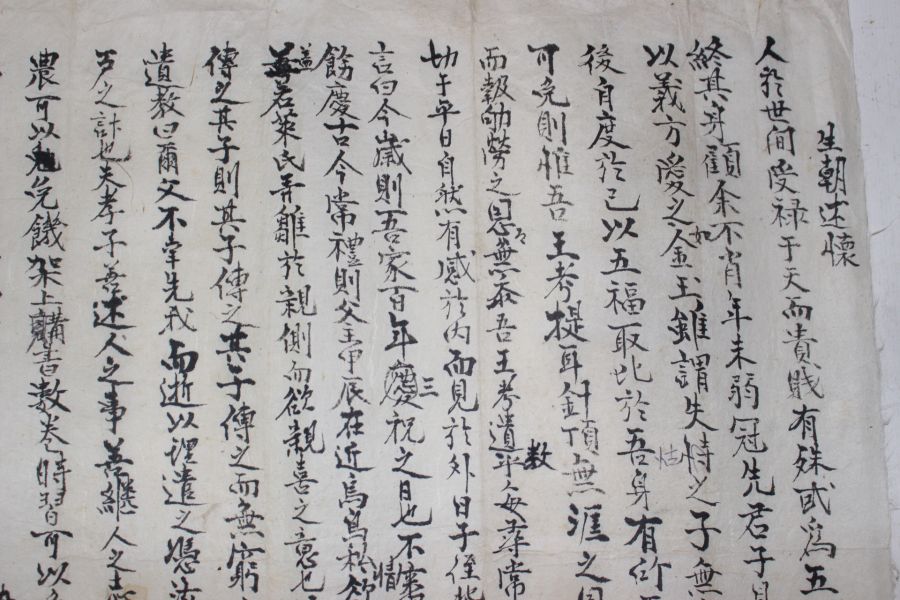 生朝述懷
人於世間受祿于天而貴賤有殊或爲五
終其身顧余不肖年未弱冠先君子見
以義方愛之如金玉雖謂失恃之子無
怙
後自度於己以五福取比於吾身有所
可免則惟吾王考提耳針頂無涯之
而報劬勞之恩無
吾王考遺
每尋常
數
切于平日自然有感於內而見於外日子侄
言曰今歲則吾家百年慶祝之日也不
三
餘慶古今常禮則父主甲辰在近烏鳥私
情
益若萊氏弄雛於親側而欲親喜之意也
傳之其子則其子傳之其子傳之而無窮
遺教曰爾父不幸先我而逝以理遣之
之計也夫孝子善述人之事善繼人之
農可以免饑架上購書數卷時習可以